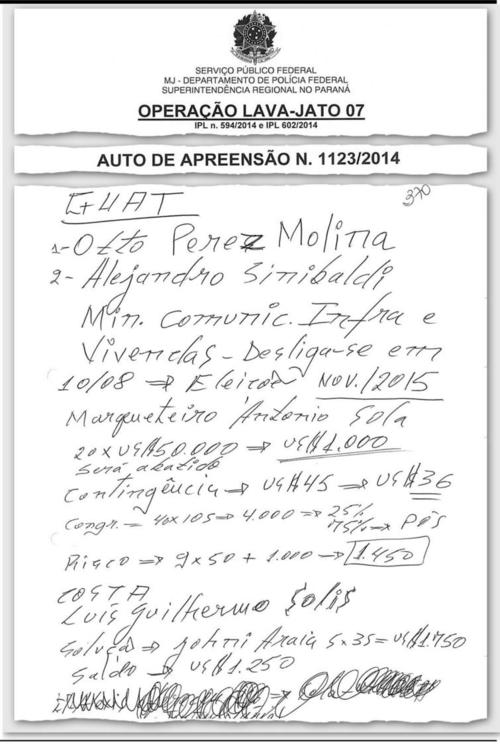 SERVIÇO PÚBLICO FEDERAL
MJ - DEPARTAMENTO DE POLÍCIA FEDERAL
SUPERINTENDÊNCIA REGIONAL NO PARANÁ
OPERAÇÃO LAVA-JATO 07
IPL n. 594/2014 e IPL 602/2014
AUTO DE APREENSÃO N. 1123/2014
370
GUAT
1- Otto Perez Molina
2- Alejandro Sinibaldi
Min. Comunic. Infra e
Vivendas - Desliga-se em
10/08 ⇒ Eleição NOV./2015
Marqueteiro Antonio Sola
20 x US$50.000 ⇒ US$1.000
será abatido
Contingência → US$45 ⇒ US$36
Congr. = 40x105 ⇒ 4.000 ⇒ 25%
75% → Pós
Risco ⇒ 9x50 + 1.000 ⇒ 1.450
COSTA
Luís Guilhermo Solis
Solução ⇒ Johni Araia 5x35 = US$1.750
Saldo ⇒ US$1.250